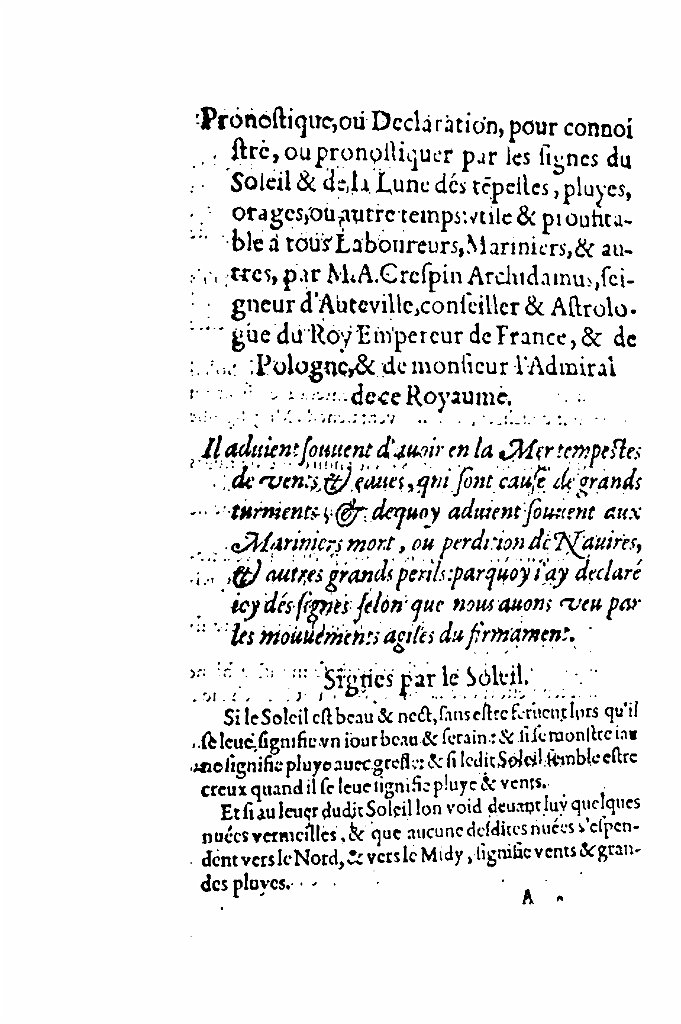 Pronoſtique, ou Declaration, pour connoi
ſtre, ou pronoſtiquer par les ſignes du
Soleil & de la Lune des tẽpeſtes, pluyes,
orages, ou autre temps: vtile & prouffita-
ble à tous Laboureurs, Mariniers, & au-
tres, par M.A. Creſpin Archidamus, ſei-
gneur d'Auteville, conſeiller & Aſtrolo-
gue du Roy Empereur de France, & de
Pologne, & de monſieur l'Admiral
de ce Royaume.
Il aduient ſouuent d'auoir en la Mer tempeſtes
de vents & eaues, qui ſont cauſe de grands
turments, & dequoy aduient ſouuent aux
Mariniers mort, ou perdition de Nauires,
& autres grands perils: parquoy i'ay declaré
icy des ſignes ſelon que nous auons veu par
les mouuements agiles du firmament.
Signes par le Soleil.
Si le Soleil eſt beau & nect, ſans eſtre feruent lors qu'il
ſe leue, ſignifie vn iour beau & ſerain: & ſi ſe monſtre iau
ne ſignifie pluye auec greſle: & ſi ledit Soleil ſemble eſtre
creux quand il ſe leue ſignifie pluye & vents.
Et ſi au leuer dudit Soleil lon void deuant luy quelques
nuées vermeilles, & que aucune deſdites nuées s'eſpen-
dent vers le Nord, & vers le Midy, ſignifie vents & gran-
des pluyes.
A